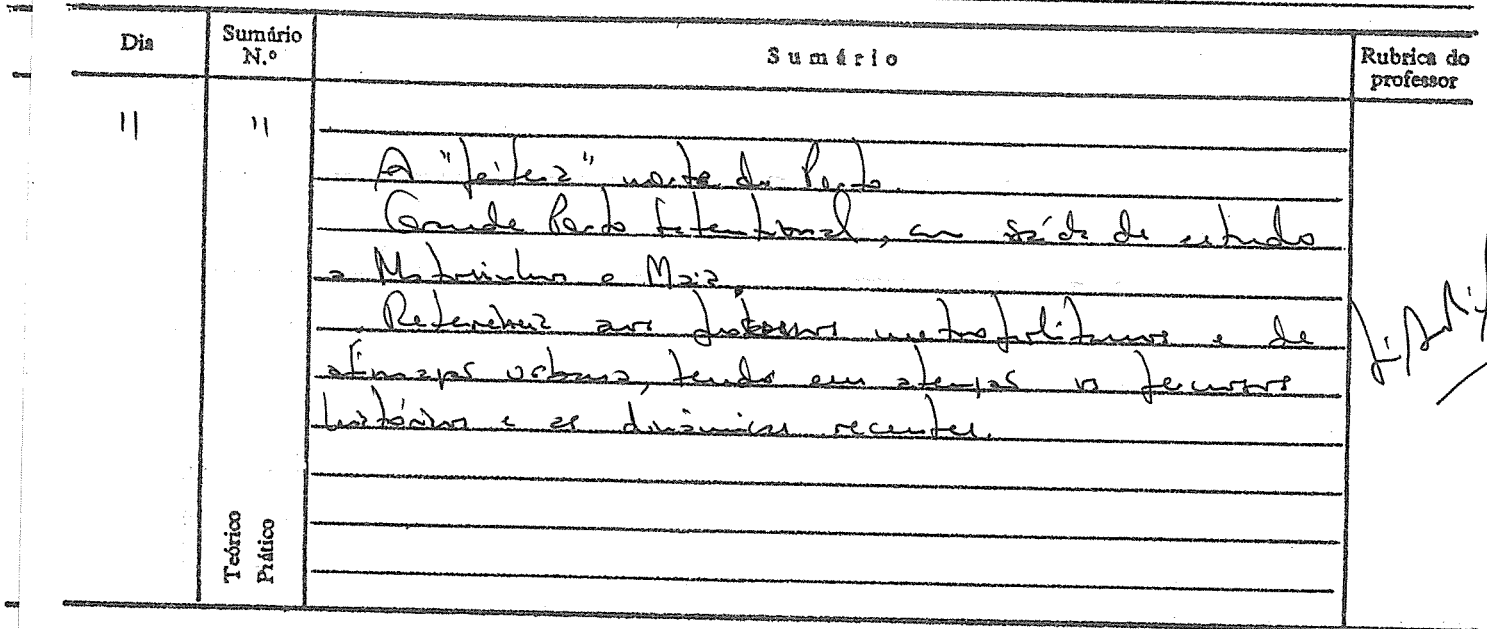 Dia
Sumário N.º
Sumário
Rubrica do professor
11
"
A "
" norte do Porto.
Grande Porto Setentrional, com saída de estudo
a Matosinhos e Maia.
Referência aos processos metropolitanos e de
afirmação urbana, tendo em atenção os percursos
históricos e as dinâmicas recentes.
Teórico
Prático